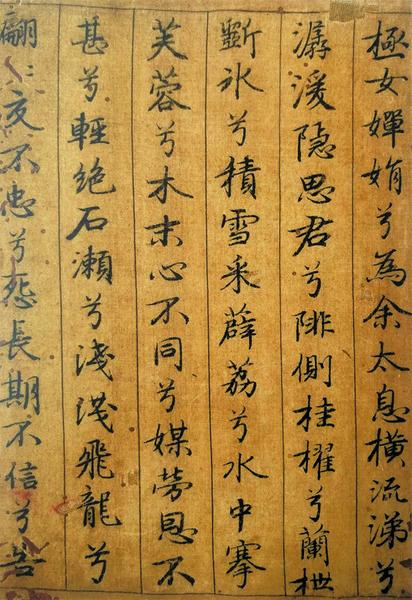 極女嬋娟兮為余太息橫流涕兮
潺湲隐思君兮陫側桂櫂兮蘭枻
斵氷兮積雪采薜荔兮水中搴
芙蓉兮木末心不同兮媒勞恩不
甚兮輕絶石瀬兮淺浅飛龍兮
翩〻交不忠兮怨長期不信兮告